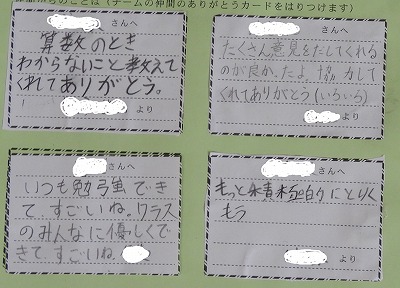 のことは（チームの仲間のありがとうカードをはりつけます）
さんへ
算数のとき
わからないこと教えて
くれてありがとう。
より
さんへ
たくさん意見をだしてくれる
のが良かったよ 協力して
くれてありがとう（いろいろ）
より
さんへ
いつも勉強できて
て、すごいね。クラス
のみんなに優しくで
きて、すごいね。
さんへ
もっと積極的にとりく
もう
より